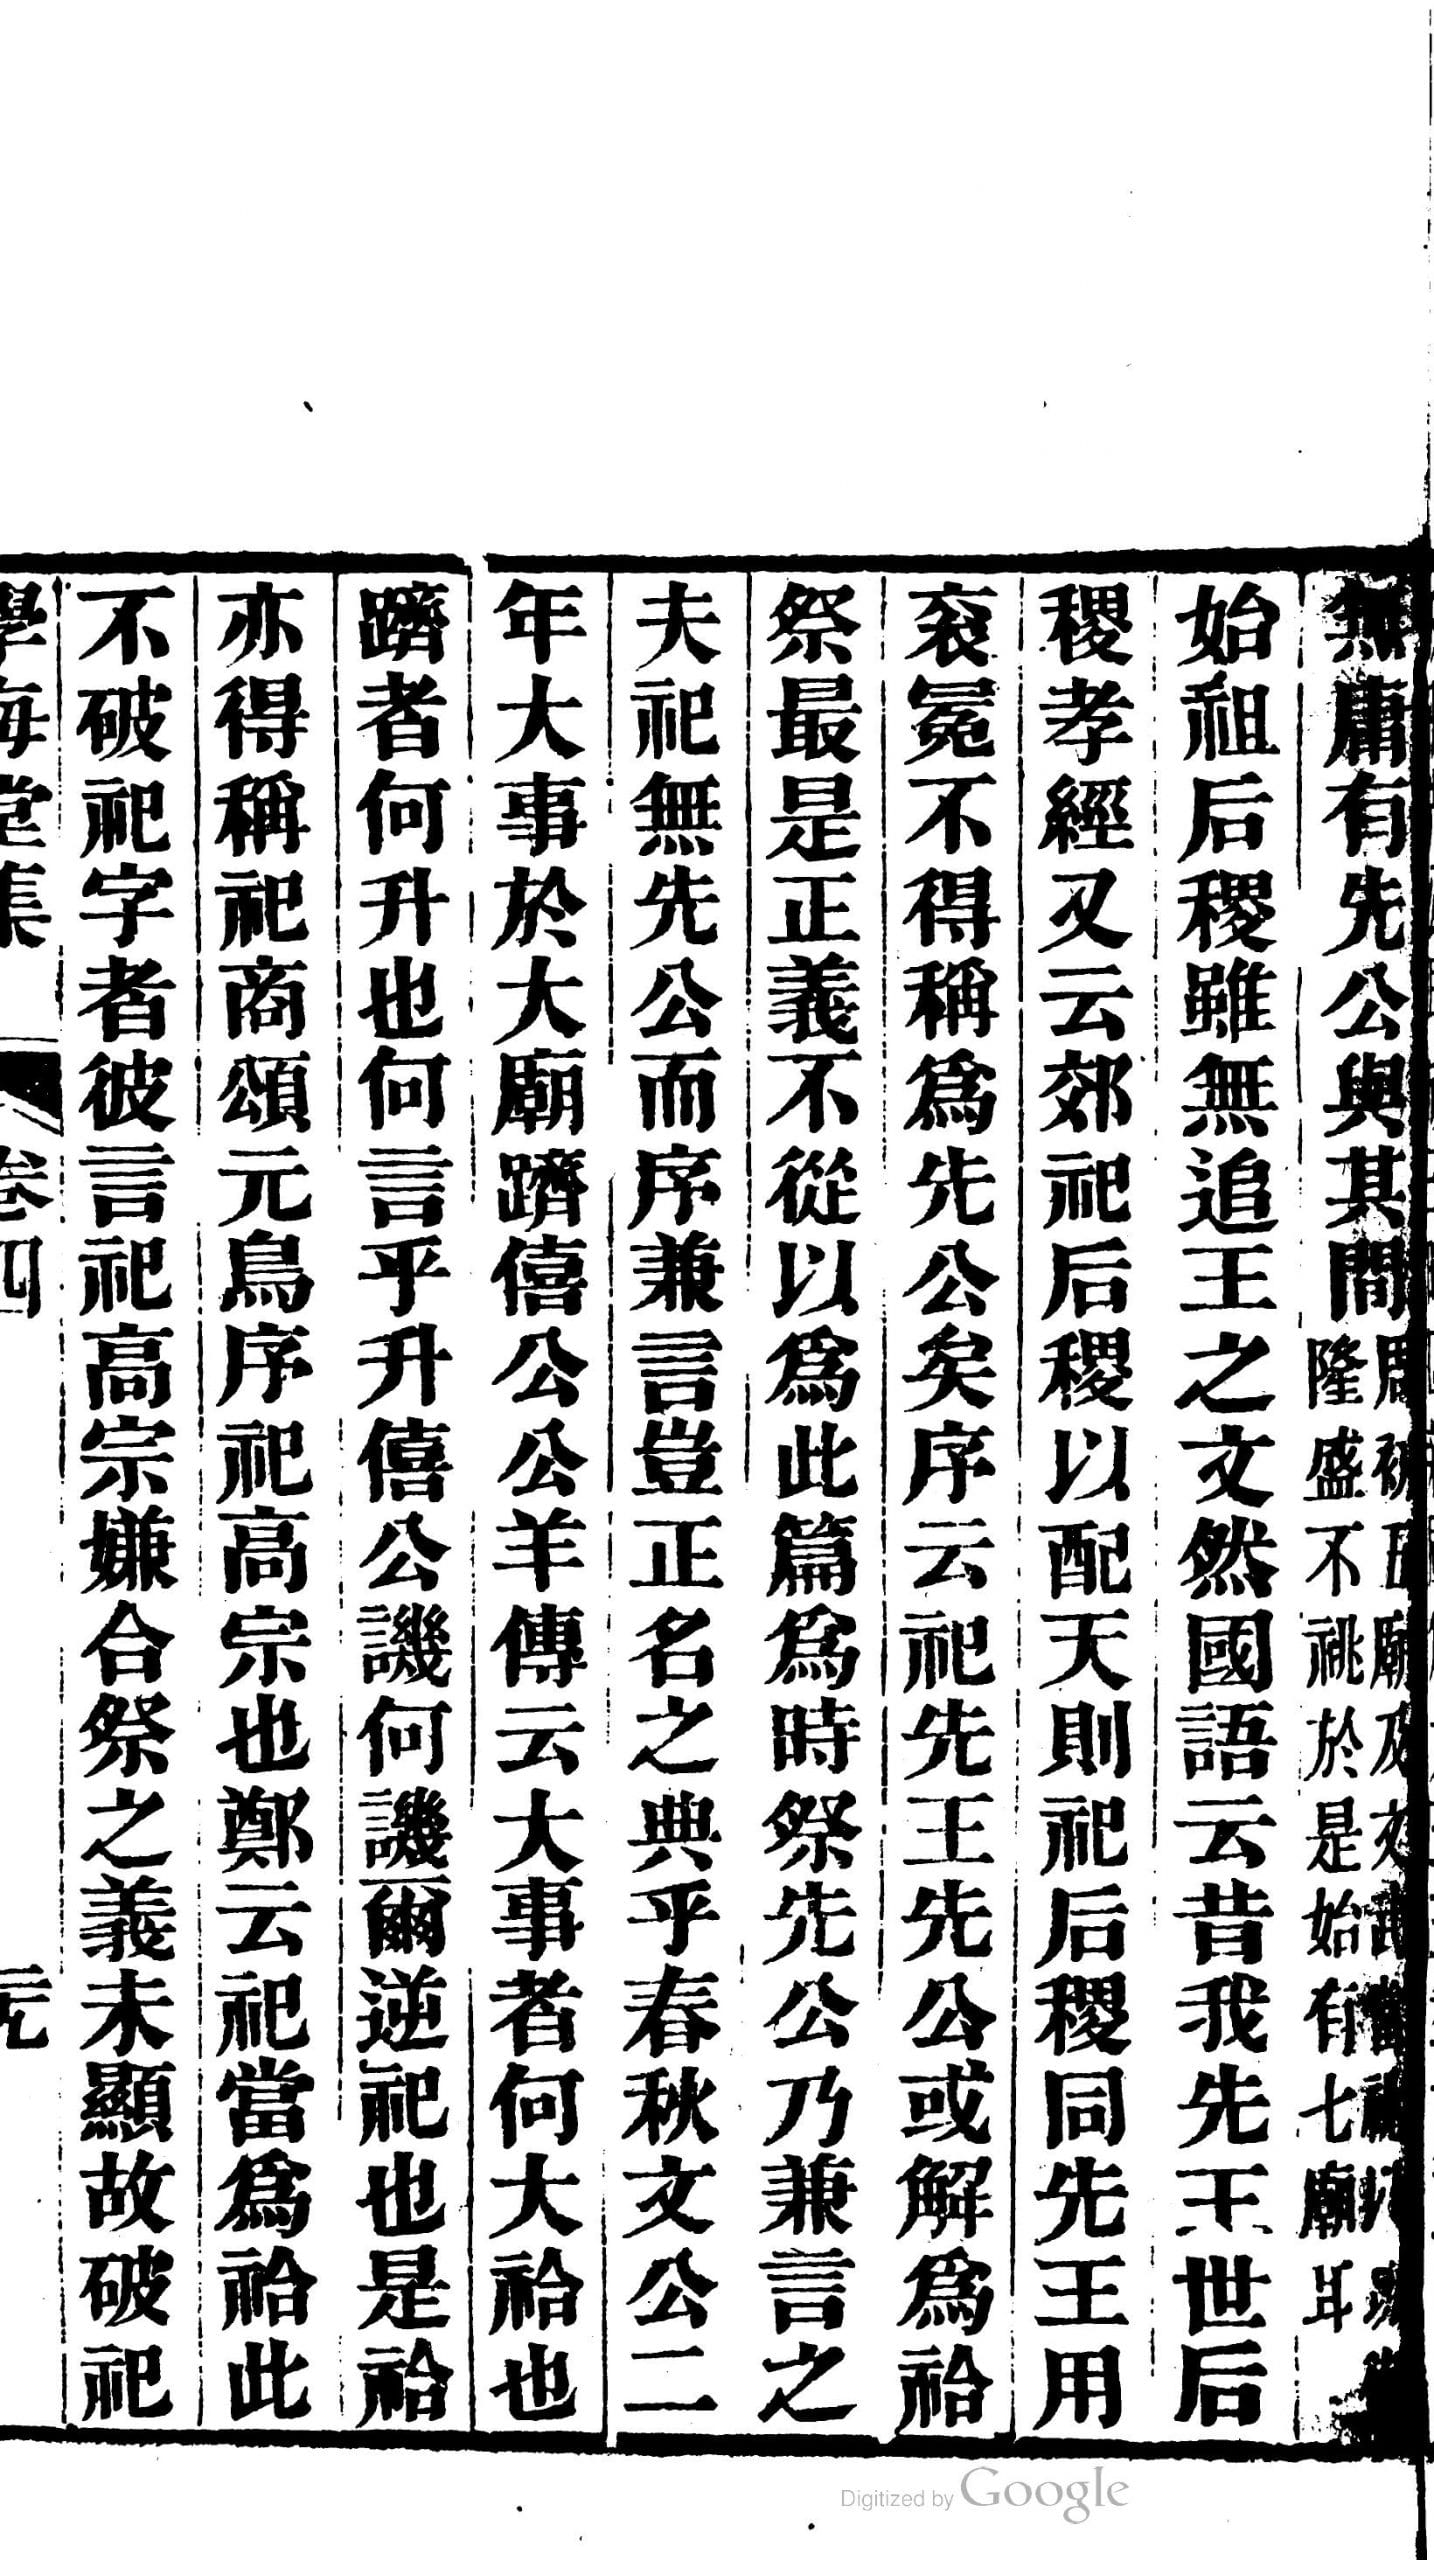 無庸有先公與其間
隆盛不祧於是始有七廟耳
始祖后稷雖無追王之文然國語云昔我先王世后
稷孝經又云郊祀后稷以配天則祀后稷同先王用
袞冕不得稱爲先公矣序云祀先王先公或解爲祫
祭最是正義不從以爲此篇爲時祭先公乃兼言之
夫祀無先公而序兼言豈正名之典乎春秋文公二
年大事於大廟躋僖公公羊傳云大事者何大祫也
躋者何升也何言乎升僖公譏何譏爾逆祀也是祫
亦得稱祀商頌元鳥序祀高宗也鄭云祀當爲祫此
不破祀字者彼言祀高宗嫌合祭之義未顯故破祀
學海堂集 卷四
Digitized by Google